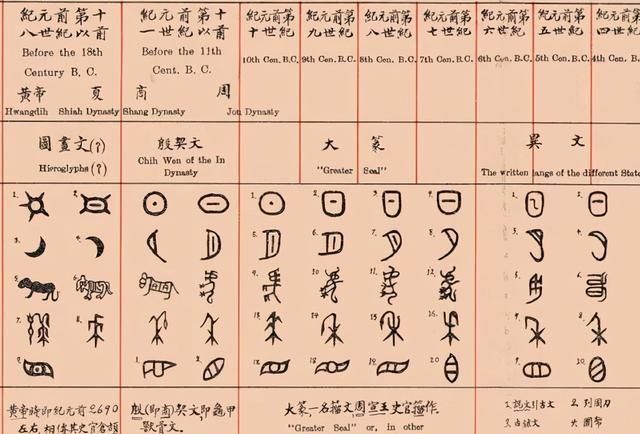 紀元前第十八世紀以前
Before the 18th
Century B. C.
紀元前第十一世紀以前
Before the 11th
Cent. B. C.
紀元前第十世紀
10th Cen. B.C.
紀元前第九世紀
9th Cen. B.C.
紀元前第八世紀
8th Cen. B.C.
紀元前第七世紀
7th Cen. B.C.
紀元前第六世紀
6th Cen. B.C.
紀元前第五世紀
5th Cen. B.C.
紀元前第四世紀
4th Cen. B.C.
黃帝 夏 商 周
Hwangdih Shiah Dynasty Shang Dynasty Jou Dynasty
圖畫文(?)
Hieroglyphs(?)
殷契文
Chih Wen of the In
Dynasty
大篆
"Greater Seal"
異文
The written langs of the different State
黃帝時即紀元前2690
左右,相傳其史官倉頡
殷(即商)契文,即龜甲
獸骨文.
大篆,一名籀文,周宣王史官籀作.
"Greater Seal" or, in other
1. 說文引古文
2. 列國刀
3. 古鉢文